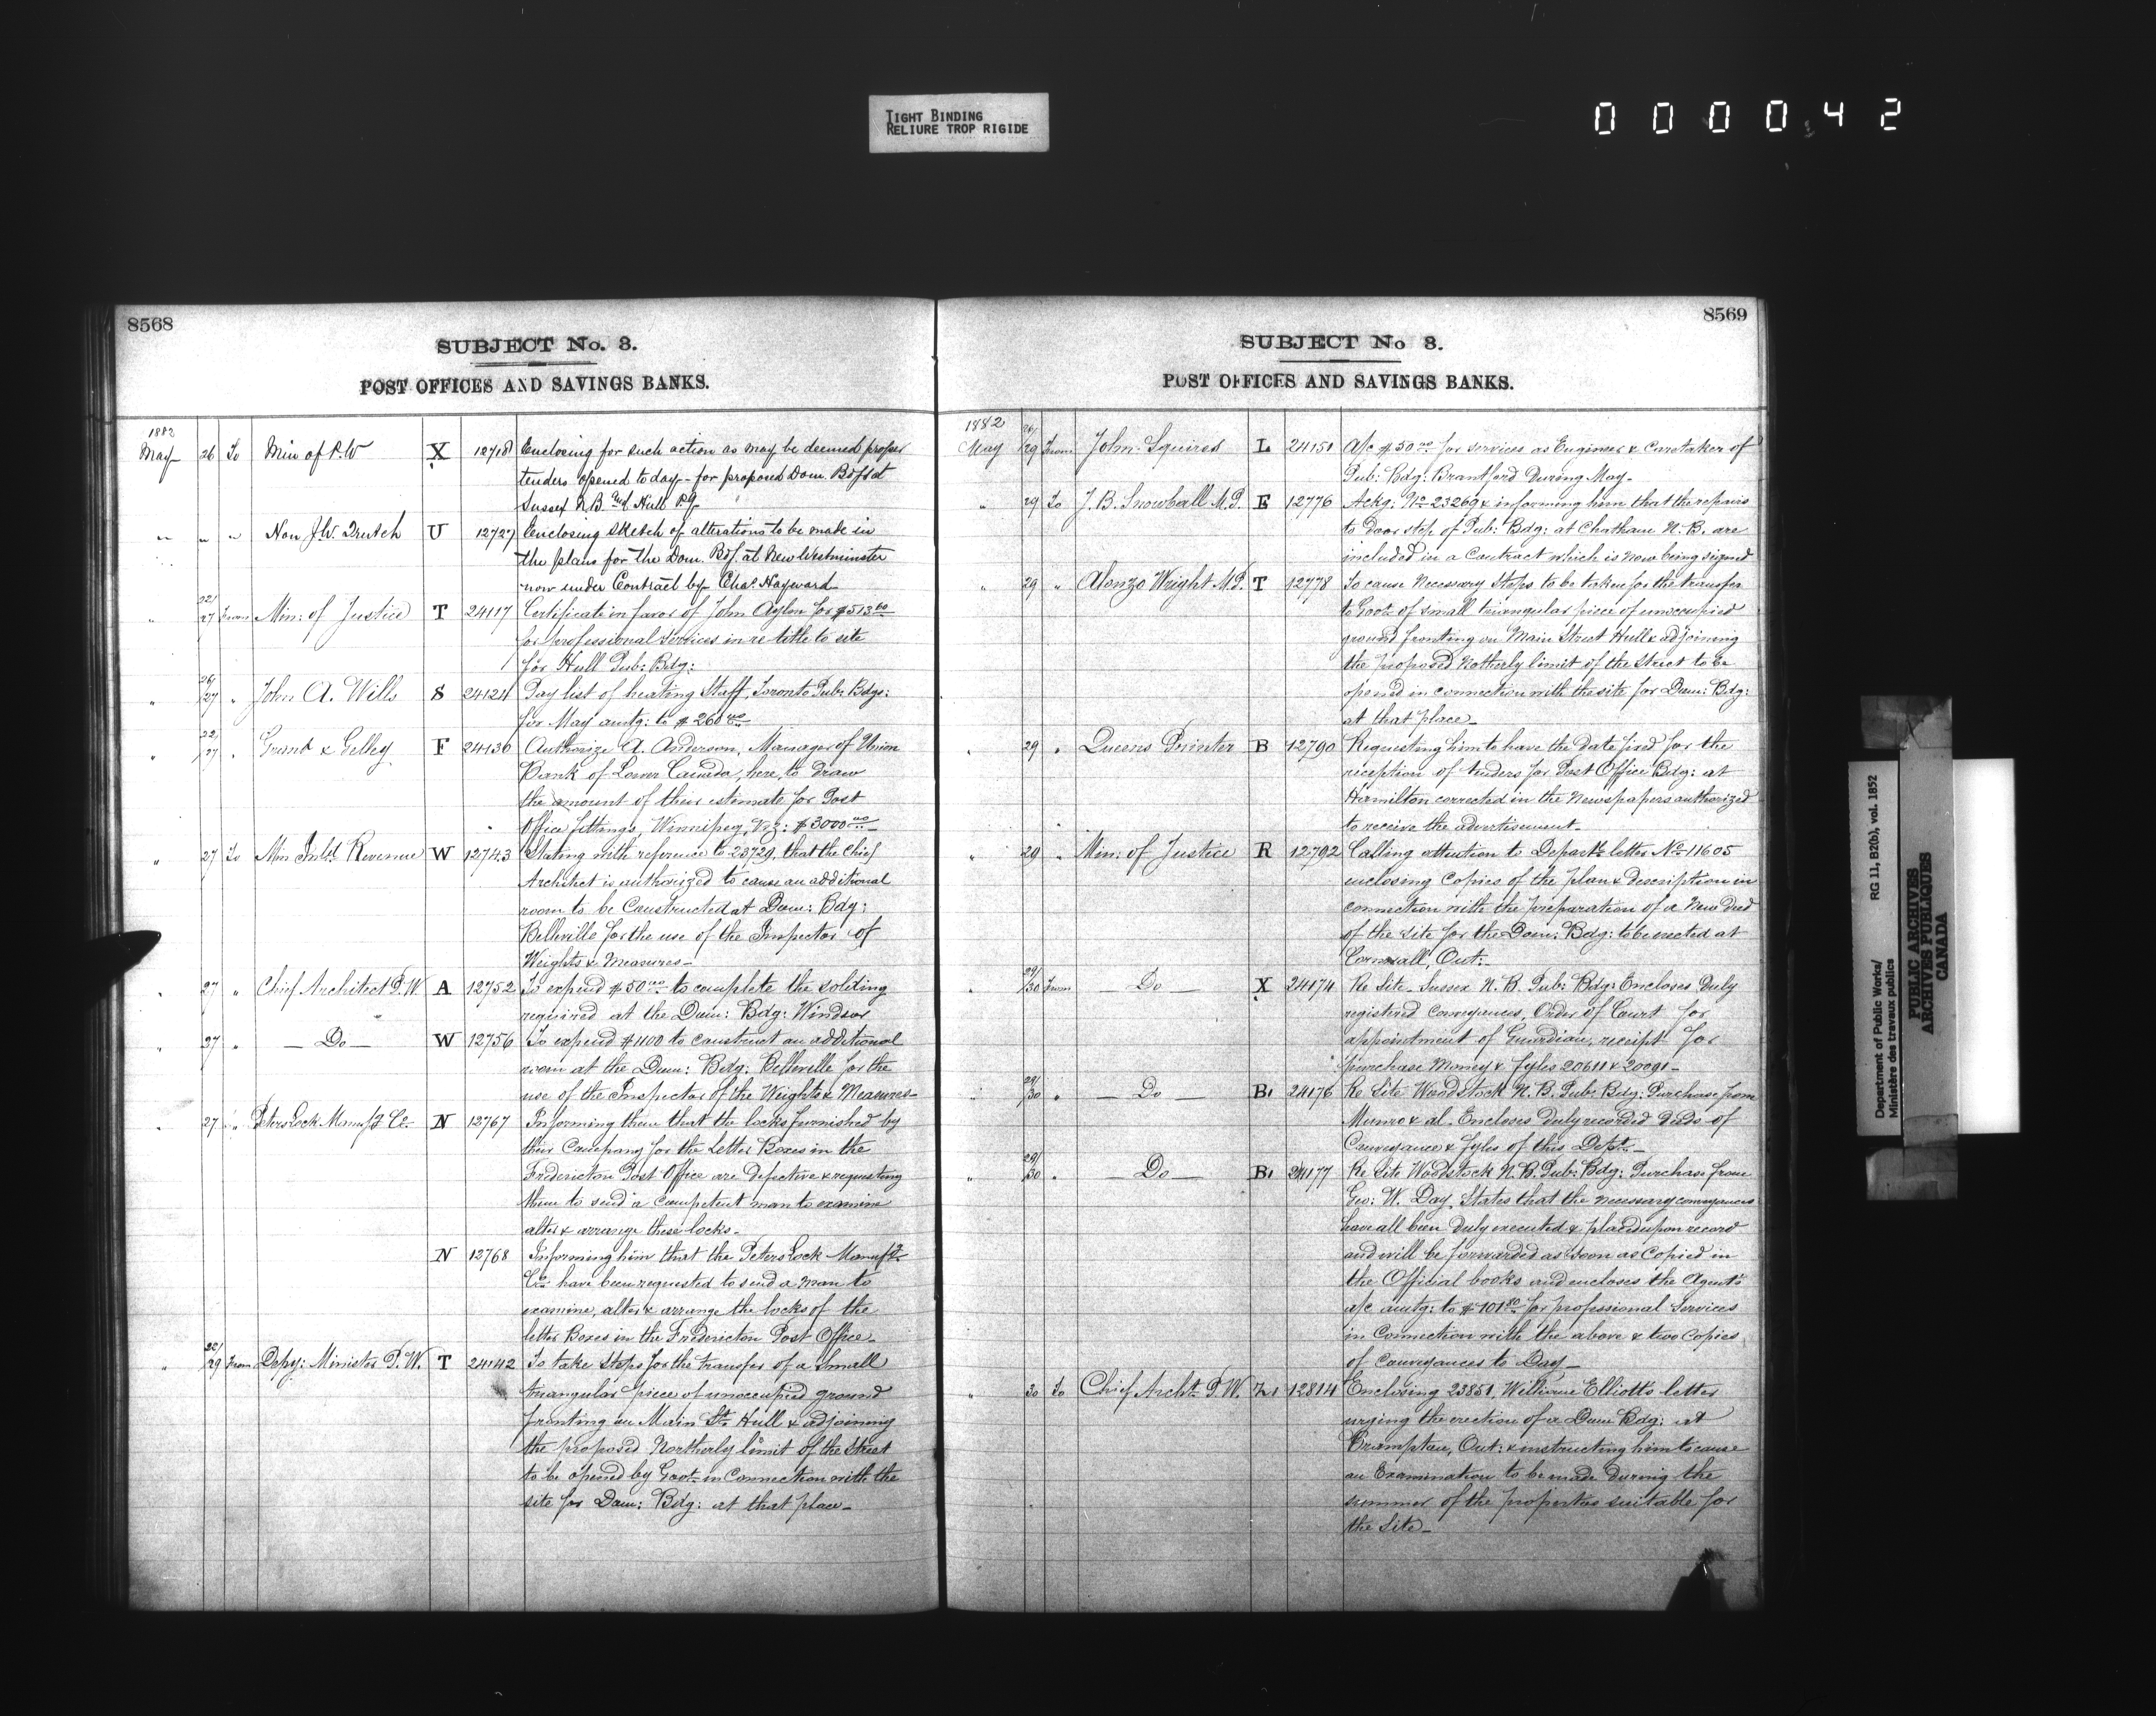 TIGHT BINDING
RELIURE TROP RIGIDE
000042
8568
SUBJECT No. 3.
POST OFFICES AND SAVINGS BANKS.
1882
May 26 To Min of P.W X 12718 Enclosing for such action as may be deemed proper
tenders opened to day - for proposed Dom. Bdgs at
Sussex N.B. and Hull P.Q.
" " " Hon J.W. Trutch U 12727 Enclosing sketch of alterations to be made in
the plans for the Dom. Bdg. at New Westminster
now under Contract by Chas. Hayward
" 22/27 From Min: of Justice T 24117 Certificate in favor of John Aylen for $513.60
for professional services in re title to site
for Hull Pub: Bdg:
" 26/27 " John A. Wills S 24121 Pay list of heating Staff, Toronto Pub: Bdgs:
for May amtg: to $260.00
" 22/27 " Grant & Gelley F 24130 Authorize A. Anderson, Manager of Union
Bank of Lower Canada, here, to draw
the amount of their estimate for Post
Office fittings, Winnipeg, viz: $3000.00
" 27 To Min Inld. Revenue W 12743 Stating with reference to 23729, that the Chief
Architect is authorized to cause an additional
room to be Constructed at Dom: Bdg:
Belleville for the use of the Inspector of
Weights & Measures -
" 27 " Chief Architect P.W A 12752 To expend $50.00 to complete the solding
required at the Dom: Bdg: Windsor
" 27 " — Do — W 12756 To expend $1100 to construct an additional
room at the Dom: Bdg: Belleville for the
use of the Inspector of the Weights & Measures -
" 27 " Peters Lock Manufg Co. N 12767 Informing them that the locks furnished by
their Company for the Letter Boxes in the
Fredericton Post Office are defective & requesting
them to send a competent man to examine
alter & arrange these locks -
N 12768 Informing him that the Peters Lock Manufg
Co. have been requested to send a man to
examine, alter & arrange the locks of the
letter Boxes in the Fredericton Post Office -
" 29 From Depy: Minister P.W. T 24142 To take steps for the transfer of a small
triangular piece of unoccupied ground
fronting on Main St. Hull & adjoining
the proposed Northerly limit of the Street
to be opened by Govt. in Connection with the
site for Dom: Bdg: at that place -
8569
SUBJECT No 3.
POST OFFICES AND SAVINGS BANKS.
1882
May 26/29 From John Squires L 24151 A/c $50.00 for services as Engineer & Caretaker of
Pub: Bdg: Brantford During May -
" 29 To J. B. Snowball M.P. E 12776 Ackg: No. 23269 & informing him that the repairs
to door step of Pub: Bdg: at Chatham N.B. are
included in a Contract which is now being signed
" 29 " Alonzo Wright M.P. T 12778 To cause necessary steps to be taken for the transfer
to Govt. of small triangular piece of unoccupied
ground fronting on Main Street Hull & adjoining
the proposed Notherly limit of the Street to be
opened in connection with the site for Dom: Bdg:
at that place -
" 29 " Queens Printer B 12790 Requesting him to have the date fixed for the
reception of tenders for Post Office Bdg: at
Hamilton corrected in the Newspapers authorized
to receive the advertisement -
" 29 " Min: of Justice R 12792 Calling attention to Departtl. letter No. 11605
enclosing Copies of the plan & description in
connection with the preparation of a New Deed
of the site for the Dom: Bdg: to be erected at
Cornwall, Ont: -
" 29/30 From — Do — X 24174 Re Site - Sussex N.B. Pub: Bdg: Encloses Duly
registered Conveyances, Order of Court for
appointment of Guardian, receipt for
purchase Money & Fyles 20611 & 20091 -
" 29/30 " — Do — B1 24176 Re Site Woodstock N.B. Pub: Bdg: Purchase from
Munro & al. Encloses duly recorded Deeds of
Conveyance & Fyles of this Dept. -
" 29/30 " — Do — B1 24177 Re Site Woodstock N.B. Pub: Bdg: Purchase from
Geo: W. Day, States that the necessary conveyances
have all been Duly executed & placed upon record
and will be forwarded as soon as Copied in
the Official books and encloses the Agent's
a/c amtg: to $101.80 for professional Services
in Connection with the above & two Copies
of Conveyances to Day -
" 30 To Chief Archt. P.W. Z1 12814 Enclosing 23851, William Elliott's letter
urging the erection of a Dom Bdg: at
Brampton, Ont: & instructing him to cause
an Examination to be made During the
summer of the properties suitable for
the Site -
Department of Public Works/ RG 11, B2(b), vol. 1852
Ministère des travaux publics
PUBLIC ARCHIVES
ARCHIVES PUBLIQUES
CANADA